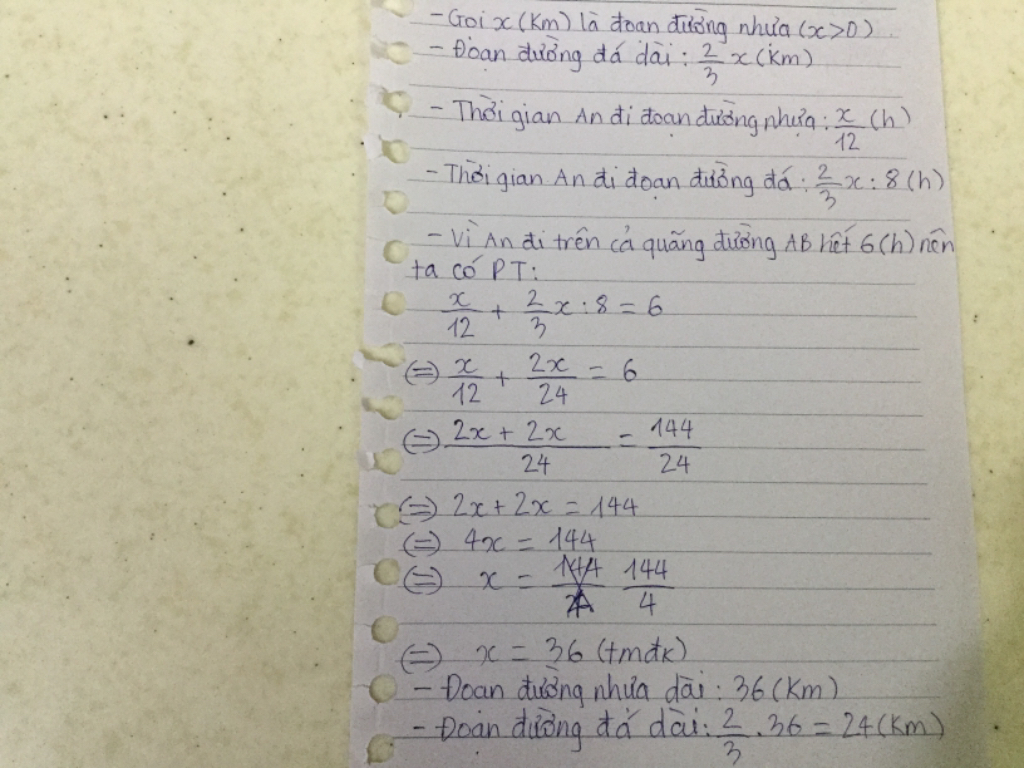 - Gọi x (Km) là đoạn đường nhựa (x>0)
- Đoạn đường đá dài : 2/3 x (Km)
- Thời gian An đi đoạn đường nhựa : x/12 (h)
- Thời gian An đi đoạn đường đá : 2/3 x : 8 (h)
- Vì An đi trên cả quãng đường AB hết 6 (h) nên
ta có PT:
x/12 + 2/3 x : 8 = 6
(=) x/12 + 2x/24 = 6
(=) (2x + 2x)/24 = 144/24
(=) 2x + 2x = 144
(=) 4x = 144
(=) x = 144/4
(=) x = 36 (tmđk)
- Đoạn đường nhựa dài : 36 (Km)
- Đoạn đường đá dài : 2/3 . 36 = 24 (Km)